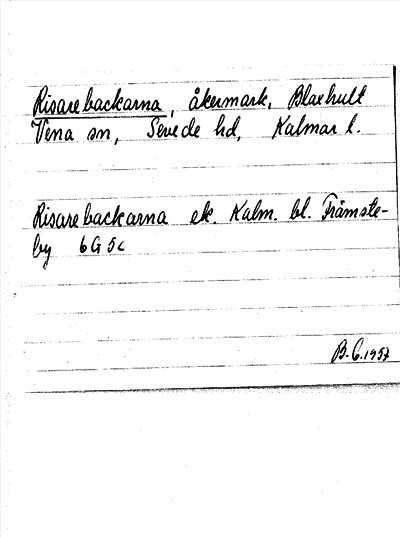 Risarebackarna, åkermark, Blaxhult
Vena sn, Sevede hd, Kalmar l.
Risarebackarna ek. Kalm. bl. Främste-
by 6G 5c
B. G. 1957